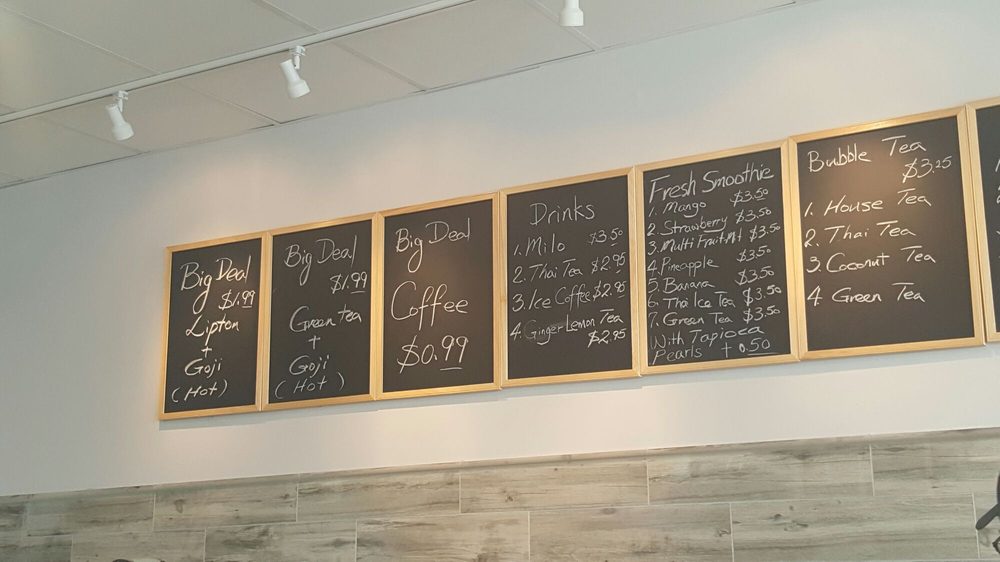 Big Deal
$1.99
Lipton
+
Goji
(Hot)
Big Deal
$1.99
Green tea
+
Goji
(Hot)
Big Deal
Coffee
$0.99
Drinks
1. Milo $3.50
2. Thai Tea $2.95
3. Ice Coffee $2.95
4. Ginger Lemon Tea
$2.95
Fresh Smoothie
1. Mango $3.50
2. Strawberry $3.50
3. Multi Fruit $3.50
4. Pineapple $3.50
5. Banana $3.50
6. Thai Ice Tea $3.50
7. Green Tea $3.50
With Tapioca
Pearls + 0.50
Bubble Tea
$3.25
1. House Tea
2. Thai Tea
3. Coconut Tea
4 Green Tea